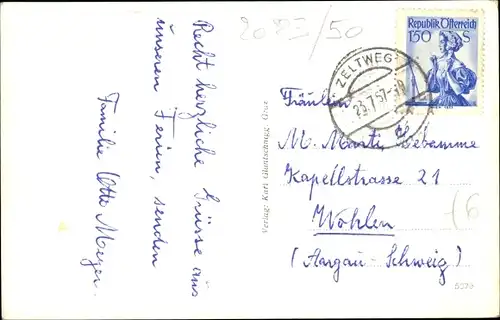 2083/50
Republik Österreich
150 S
ZELTWEG
23.7.57
Recht herzliche Grüsse aus
unseren Ferien, senden
Familie Otto Meyer.
Fräulein
M. Marti, Hebamme
Kapellstrasse 21
Wohlen
(Aargau - Schweiz)
Verlag: Karl
Graz